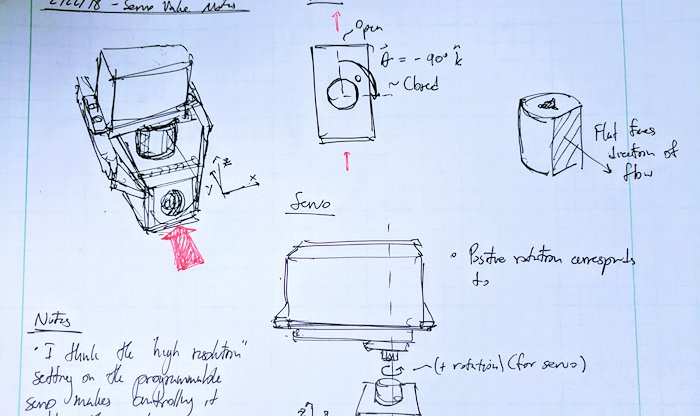 2/22/18 - Servo Valve Notes
~ Open
θ = - 90° k̂
~ Closed
z
y
x
Flat faces
direction of
flow
Servo
• Positive rotation corresponds
to
~(+ rotation) (for servo)
Notes
• I think the "high resolution"
setting on the programmable
servo makes controlling it